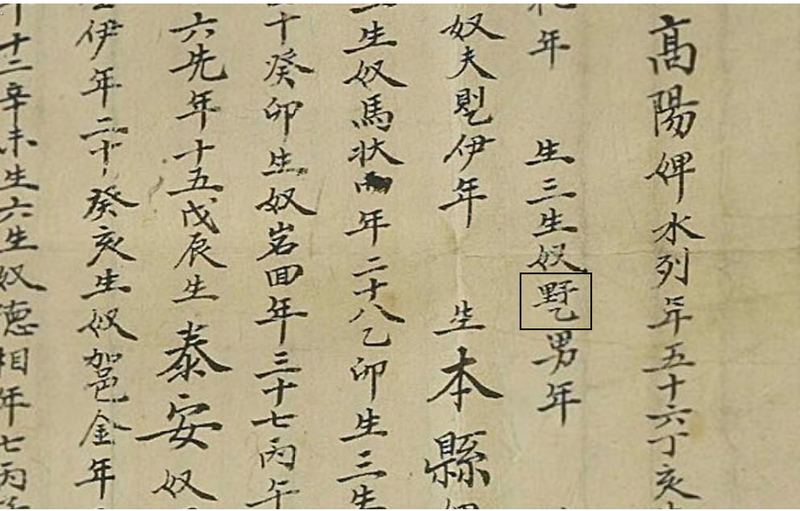 高陽婢水列年五十六丁亥
年 生三生奴男年
奴夫伊年 生本縣
生奴馬状年二十八乙卯生三生
十癸卯生奴岩回年三十七丙午
六先年十五戊辰生泰安奴
伊年二十癸亥生奴金年
年十二辛未生六生奴徳相年七丙